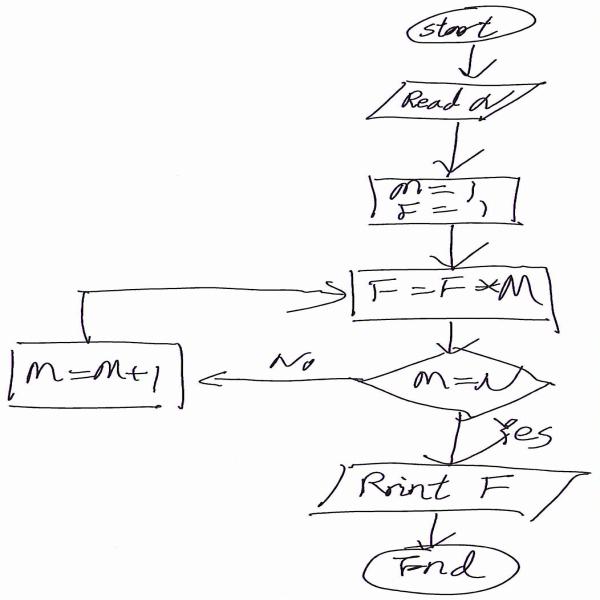 start
Read N
M = 1
F = 1
F = F * M
No
M = N
M = M + 1
Yes
Print F
End